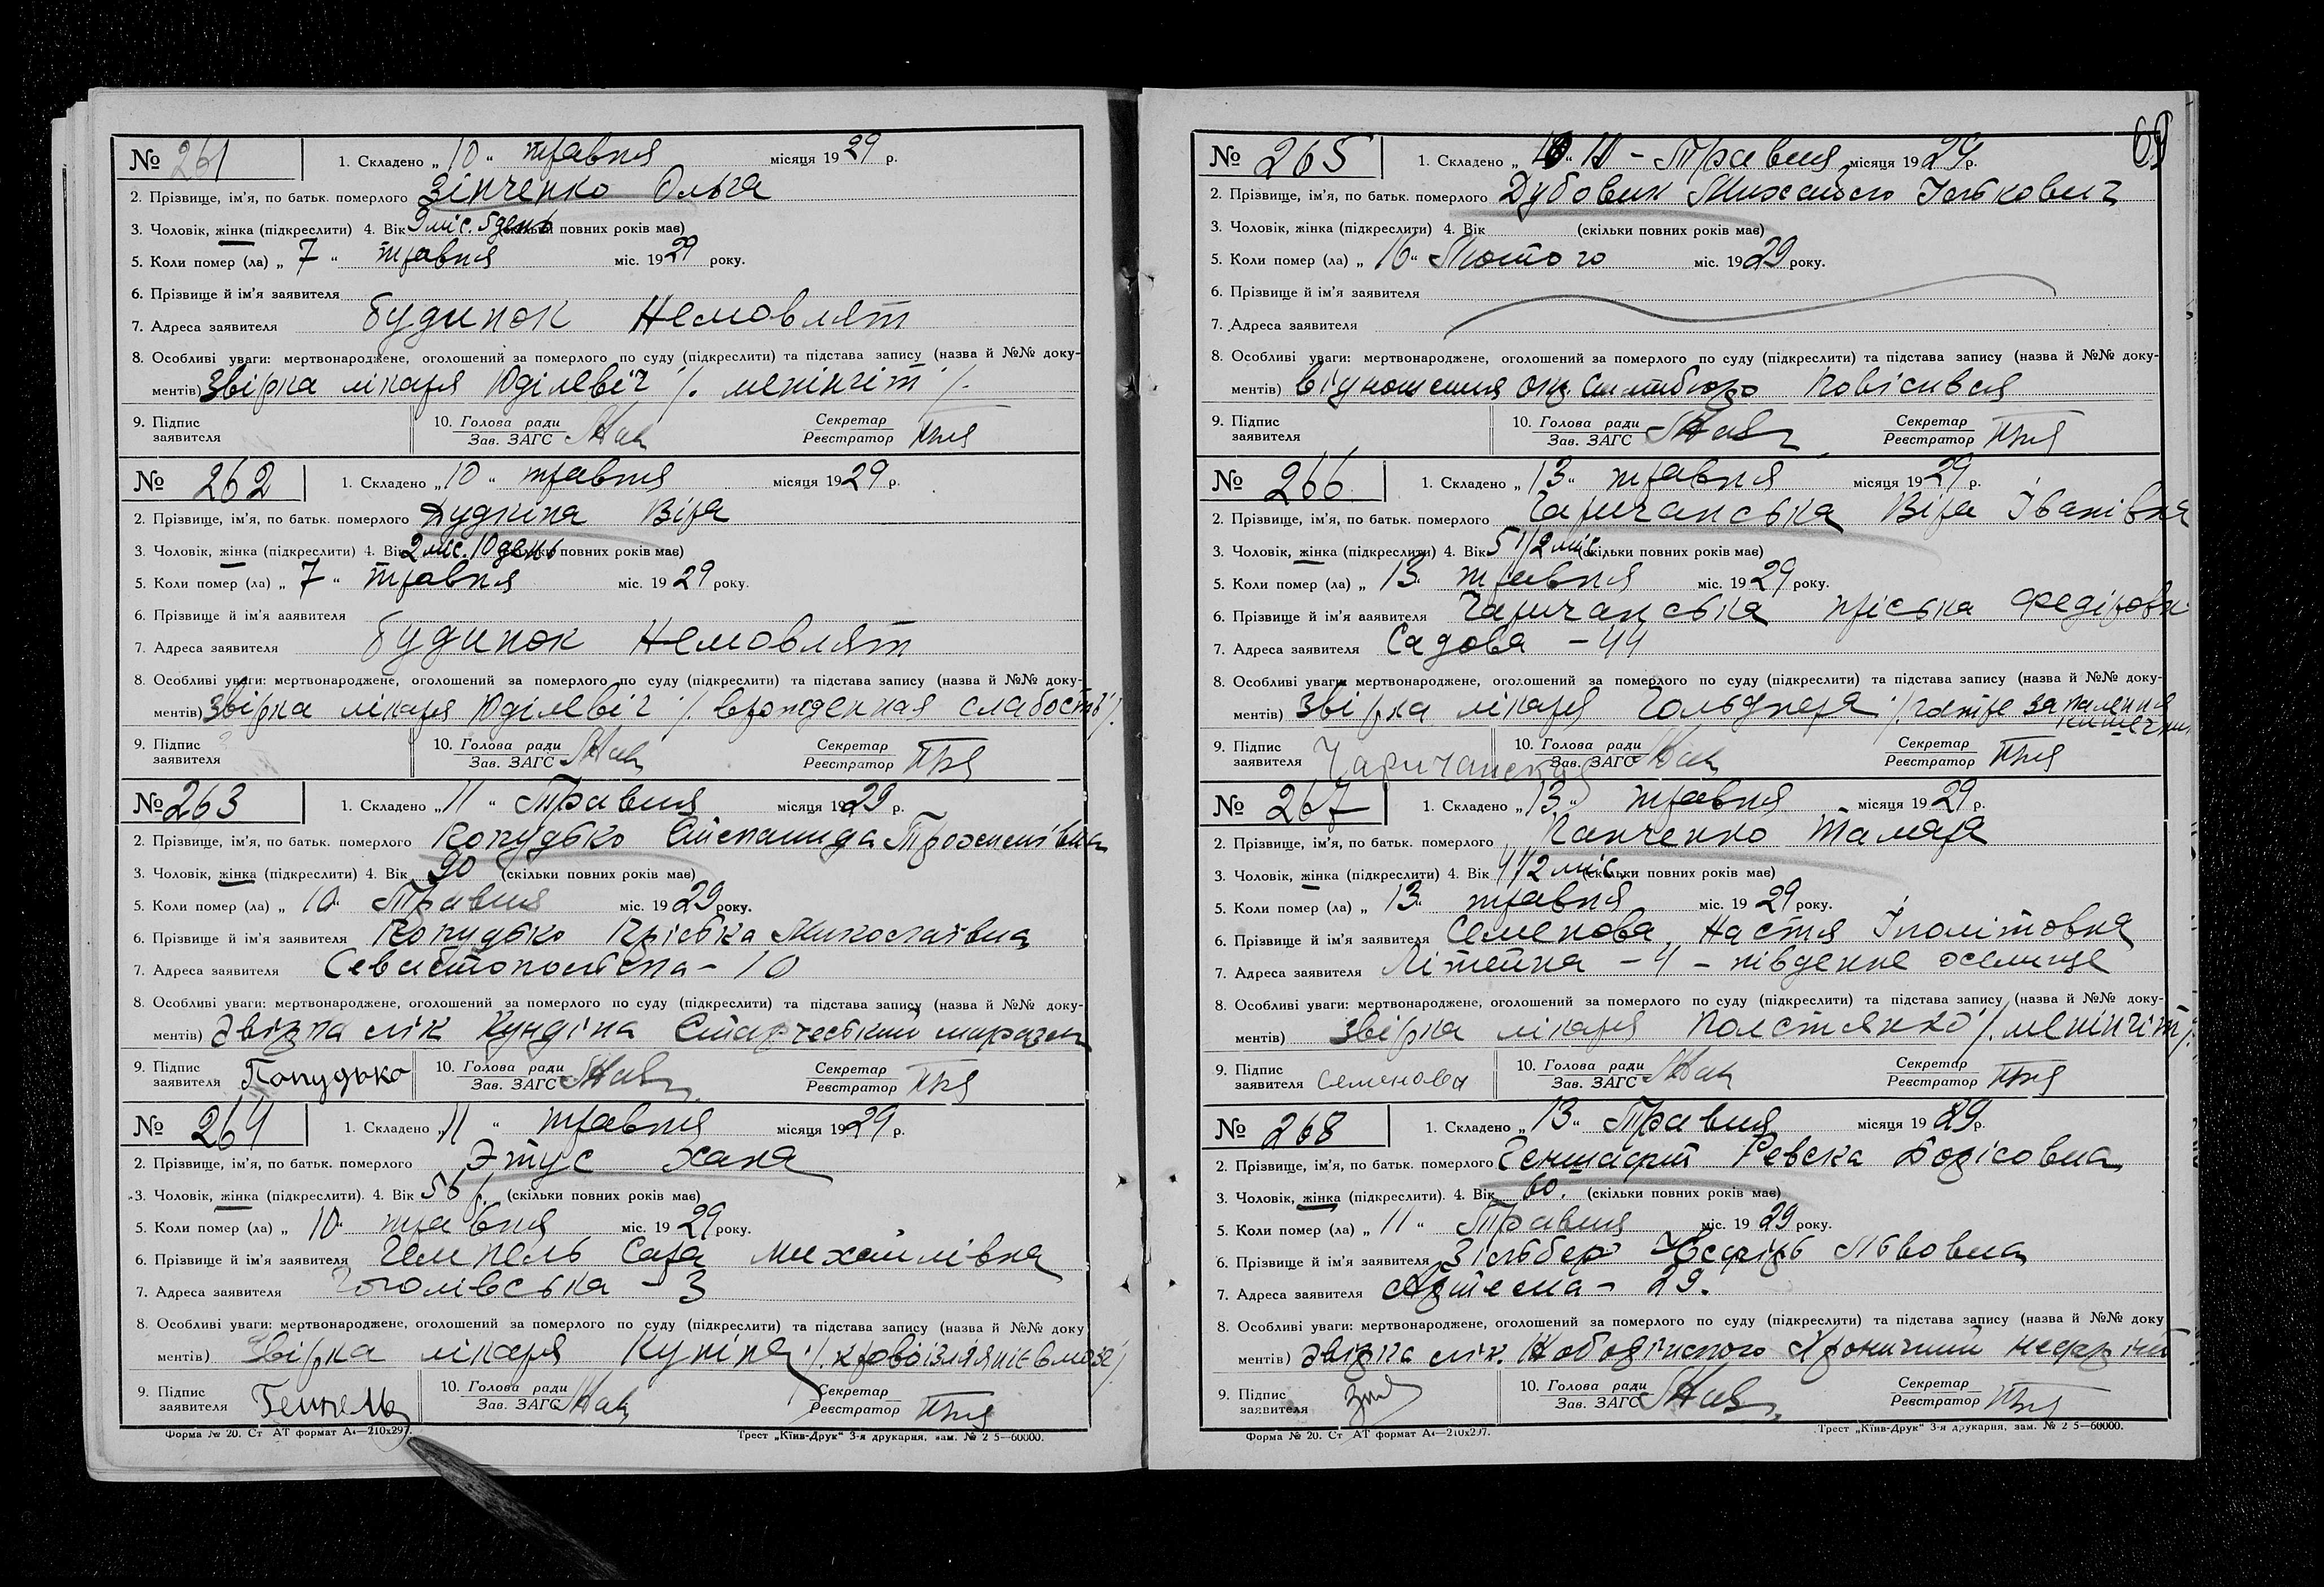 № 261 1. Складено „ 10 “ травня місяця 1929 р.
2. Прізвище, ім'я, по батьк. померлого Зінченко Ольга
3. Чоловік, жінка (підкреслити) 4. Вік 9 міс. 5 день повних років має)
5. Коли помер (ла) „ 7 “ травня міс. 1929 року.
6. Прізвище й ім'я заявителя
7. Адреса заявителя будинок Немовлят
8. Особливі уваги: мертвонароджене, оголошений за померлого по суду (підкреслити) та підстава запису (назва й №№ доку-
ментів) Звірка лікаря Юділевіч /. менінгіт /.
9. Підпис заявителя 10. Голова ради Зав. ЗАГС Секретар Реєстратор
№ 262 1. Складено „ 10 “ травня місяця 1929 р.
2. Прізвище, ім'я, по батьк. померлого Дудкіна Віра
3. Чоловік, жінка (підкреслити) 4. Вік 2 міс. 10 день повних років має)
5. Коли помер (ла) „ 7 “ травня міс. 1929 року.
6. Прізвище й ім'я заявителя
7. Адреса заявителя будинок Немовлят
8. Особливі уваги: мертвонароджене, оголошений за померлого по суду (підкреслити) та підстава запису (назва й №№ доку-
ментів) Звірка лікаря Юділевіч /. врожденная слабость /.
9. Підпис заявителя 10. Голова ради Зав. ЗАГС Секретар Реєстратор
№ 263 1. Складено „ 11 “ Травня місяця 1929 р.
2. Прізвище, ім'я, по батьк. померлого Степанида
3. Чоловік, жінка (підкреслити) 4. Вік 90 (скільки повних років має)
5. Коли помер (ла) „ 10 “ Травня міс. 1929 року.
6. Прізвище й ім'я заявителя Пріська Миколаївна
7. Адреса заявителя Севастопольська - 10
8. Особливі уваги: мертвонароджене, оголошений за померлого по суду (підкреслити) та підстава запису (назва й №№ доку-
ментів) лік Кундіна Старческий маразм
9. Підпис заявителя 10. Голова ради Зав. ЗАГС Секретар Реєстратор
№ 264 1. Складено „ 11 “ травня місяця 1929 р.
2. Прізвище, ім'я, по батьк. померлого Этус Хана
3. Чоловік, жінка (підкреслити). 4. Вік 56 р. (скільки повних років має)
5. Коли помер (ла) „ 10 “ травня міс. 1929 року.
6. Прізвище й ім'я заявителя Сара Михайлівна
7. Адреса заявителя Гоголівська - 3
8. Особливі уваги: мертвонароджене, оголошений за померлого по суду (підкреслити) та підстава запису (назва й №№ доку
ментів) Звірка лікаря
9. Підпис заявителя 10. Голова ради Зав. ЗАГС Секретар Реєстратор
Форма № 20. Ст АТ формат А4—210х297. Трест „Київ-Друк“ 3-я друкарня, зам. № 2 5—60000.
№ 265 1. Складено Травня місяця 1929 р.
2. Прізвище, ім'я, по батьк. померлого Дубовик Михайло
3. Чоловік, жінка (підкреслити) 4. Вік (скільки повних років має)
5. Коли помер (ла) „ 16 “ Лютого міс. 1929 року.
6. Прізвище й ім'я заявителя
7. Адреса заявителя
8. Особливі уваги: мертвонароджене, оголошений за померлого по суду (підкреслити) та підстава запису (назва й №№ доку-
ментів) Відношення Повісився
9. Підпис заявителя 10. Голова ради Зав. ЗАГС Секретар Реєстратор
№ 266 1. Складено „ 13 “ травня місяця 1929 р.
2. Прізвище, ім'я, по батьк. померлого Чаричанська Віра Іванівна
3. Чоловік, жінка (підкреслити) 4. Вік 5 1/2 міс. (скільки повних років має)
5. Коли помер (ла) „ 13 травня міс. 1929 року.
6. Прізвище й ім'я заявителя Чаричанська Пріська
7. Адреса заявителя Садова - 44
8. Особливі уваги мертвонароджене, оголошений за померлого по суду (підкреслити) та підстава запису (назва й №№ доку-
ментів) Звірка лікаря запалення
9. Підпис заявителя Чаричанская 10. Голова ради Зав. ЗАГС Секретар Реєстратор
№ 267 1. Складено „ 13 “ травня місяця 1929 р.
2. Прізвище, ім'я, по батьк. померлого Панченко Тамара
3. Чоловік, жінка (підкреслити) 4. Вік 4 1/2 міс. (скільки повних років має)
5. Коли помер (ла) „ 13 травня міс. 1929 року.
6. Прізвище й ім'я заявителя Семенова Настя Іполітовна
7. Адреса заявителя Літейна - 4 - південне оселище
8. Особливі уваги: мертвонароджене, оголошений за померлого по суду (підкреслити) та підстава запису (назва й №№ доку-
ментів) Звірка лікаря /. менінгіт /.
9. Підпис заявителя Семенова 10. Голова ради Зав. ЗАГС Секретар Реєстратор
№ 268 1. Складено „ 13 “ Травня місяця 1929 р.
2. Прізвище, ім'я, по батьк. померлого Борісовна
3. Чоловік, жінка (підкреслити). 4. Вік 60. (скільки повних років має)
5. Коли помер (ла) „ 11 “ Травня міс. 1929 року.
6. Прізвище й ім'я заявителя Зільбер Львовна
7. Адреса заявителя Артема - 29.
8. Особливі уваги: мертвонароджене, оголошений за померлого по суду (підкреслити) та підстава запису (назва й №№ доку
ментів) лік. Хроничний
9. Підпис заявителя 10. Голова ради Зав. ЗАГС Секретар Реєстратор
Форма № 20. Ст АТ формат А4—210х297. Трест „Київ-Друк“ 3-я друкарня, зам. № 2 5—60000.